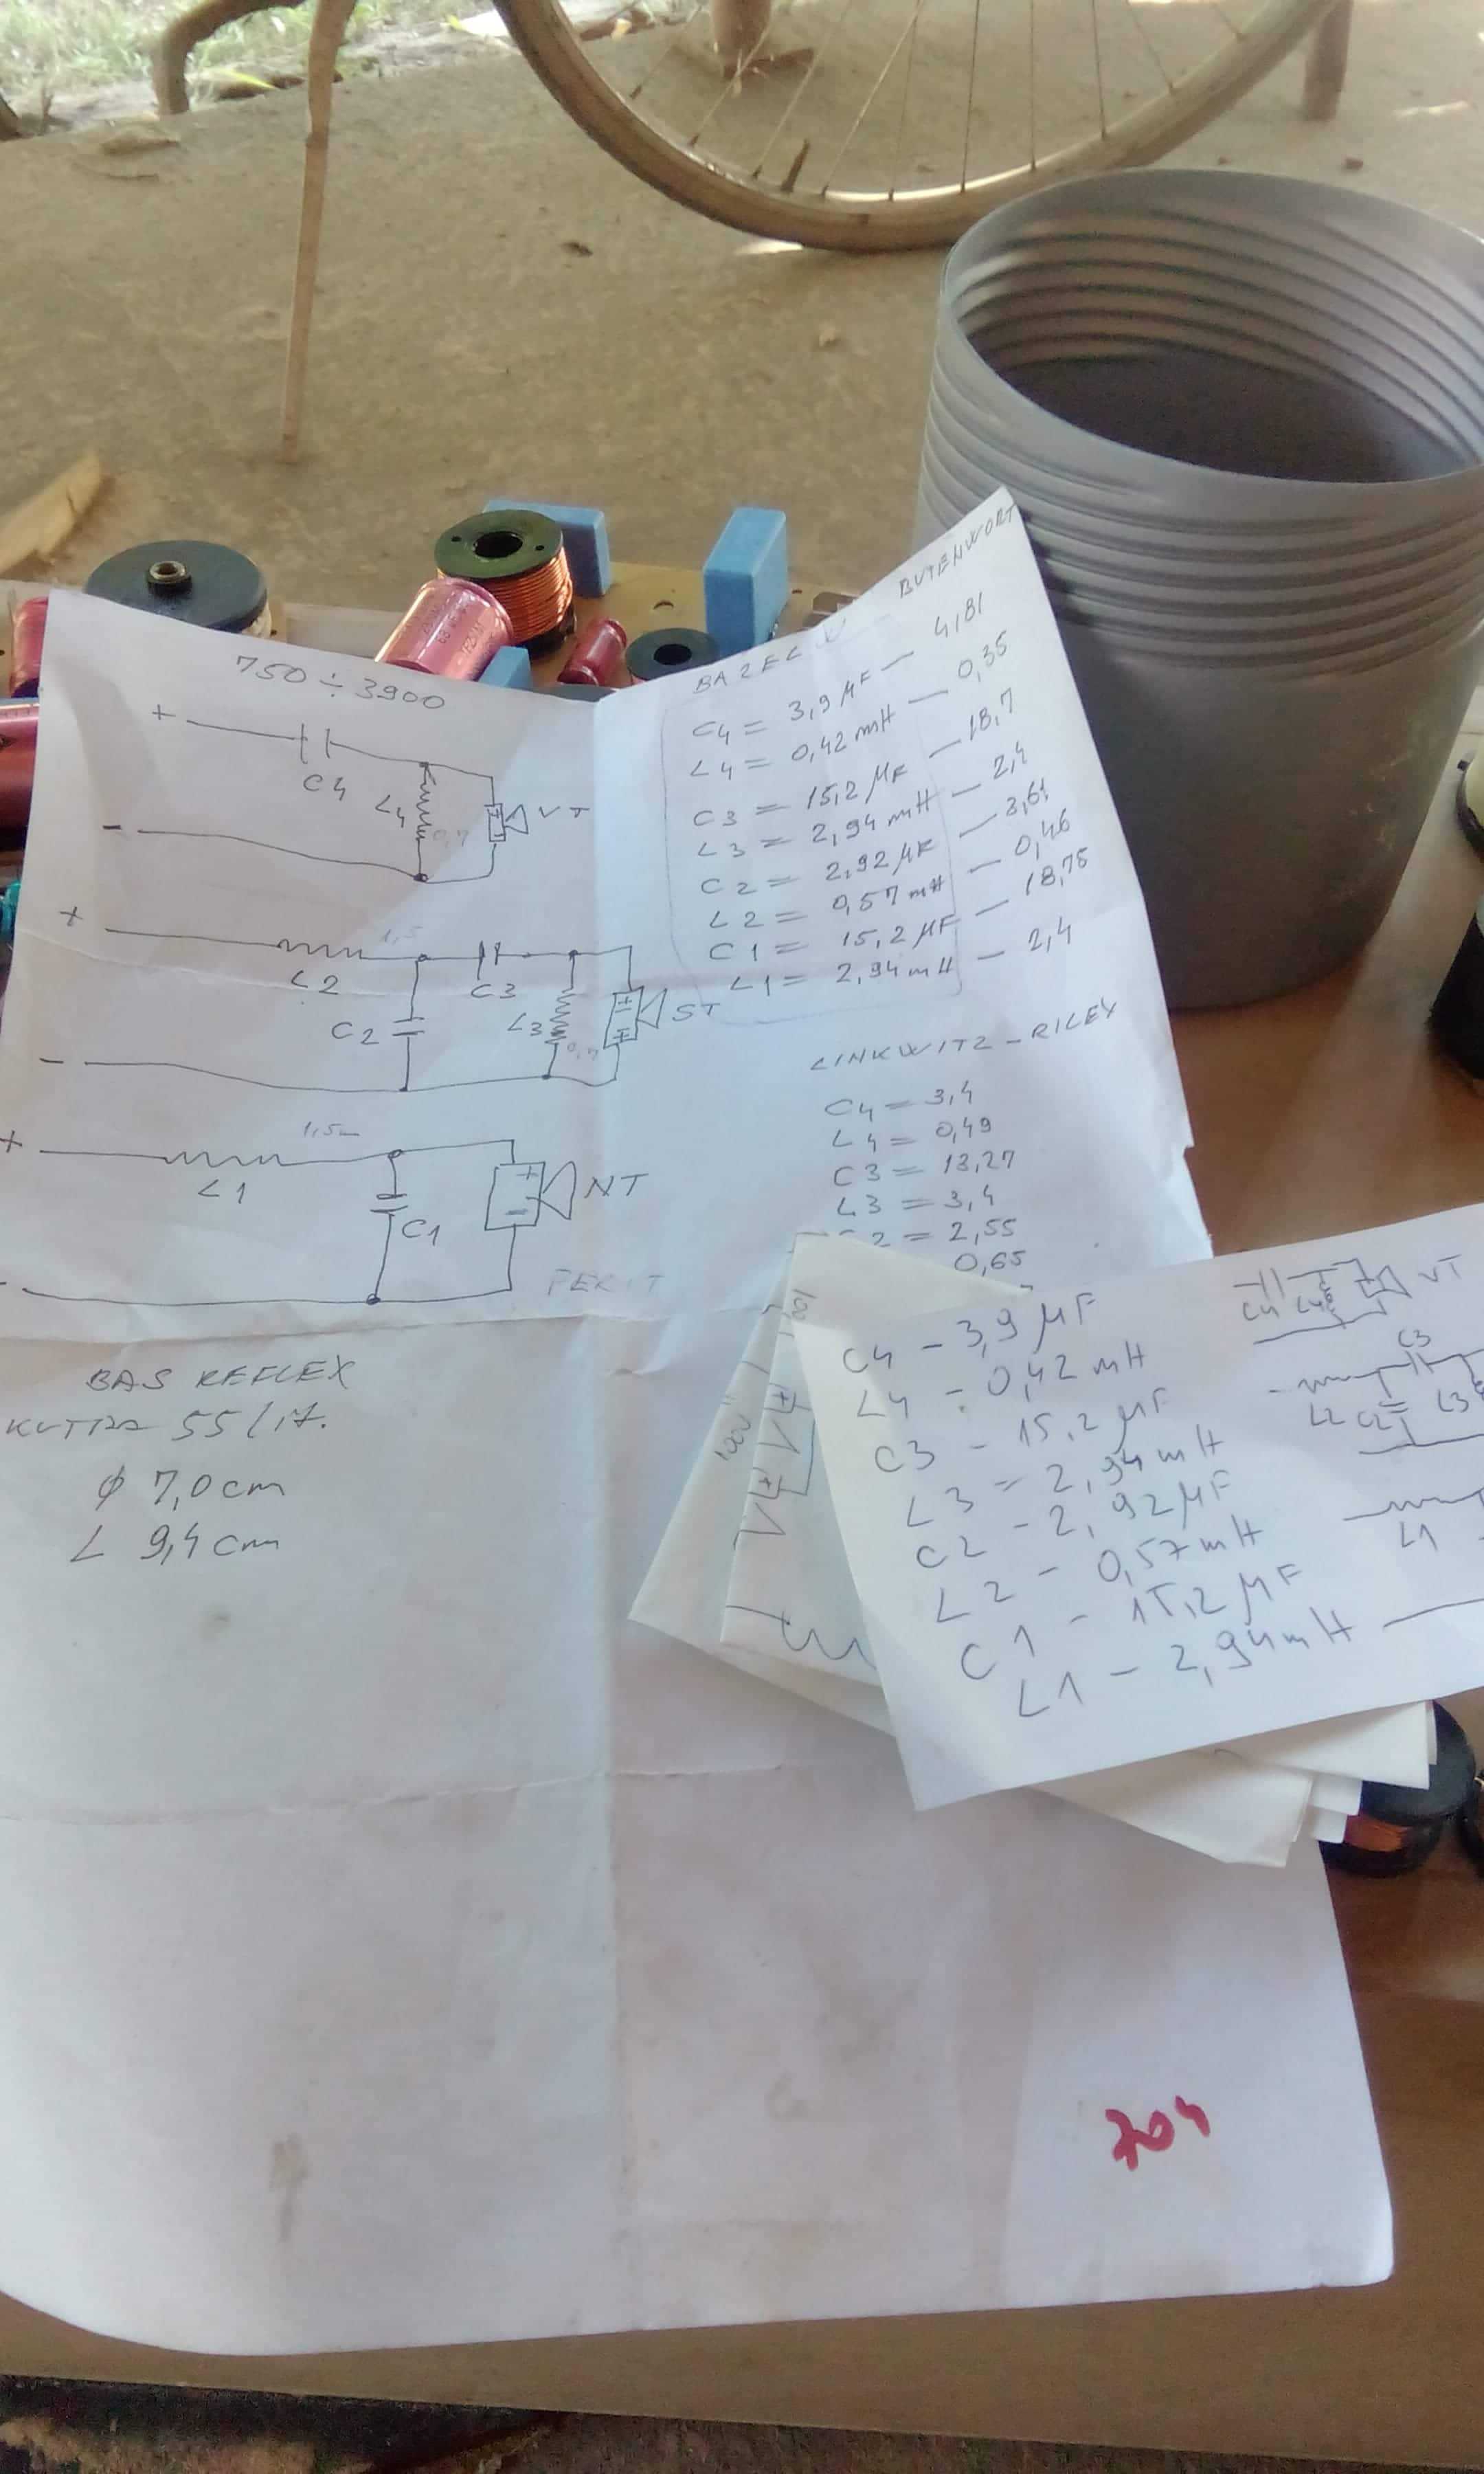 750 ÷ 3900
+
C4
L4
0,7
VT
-
+
1,5
L2
C3
C2
L3
0,7
ST
-
+
1,5
L1
C1
NT
-
BAS REFLEX
55 lit.
φ 7,0 cm
L 9,4 cm
BUTEHWORT
C4 = 3,9 μF — 4,81
L4 = 0,42 mH — 0,35
C3 = 15,2 μF — 18,7
L3 = 2,94 mH — 2,4
C2 = 2,92 μF — 3,61
L2 = 0,57 mH — 0,46
C1 = 15,2 μF — 18,75
L1 = 2,94 mH — 2,4
LINKWITZ - RILEY
C4 = 3,4
L4 = 0,49
C3 = 13,27
L3 = 3,4
2 = 2,55
0,65
C4 - 3,9 μF
L4 - 0,42 mH
C3 - 15,2 μF
L3 - 2,94 mH
C2 - 2,92 μF
L2 - 0,57 mH
C1 - 15,2 μF
L1 - 2,94 mH
C4 L4 VT
C3
L2 C2 L3
L1
704